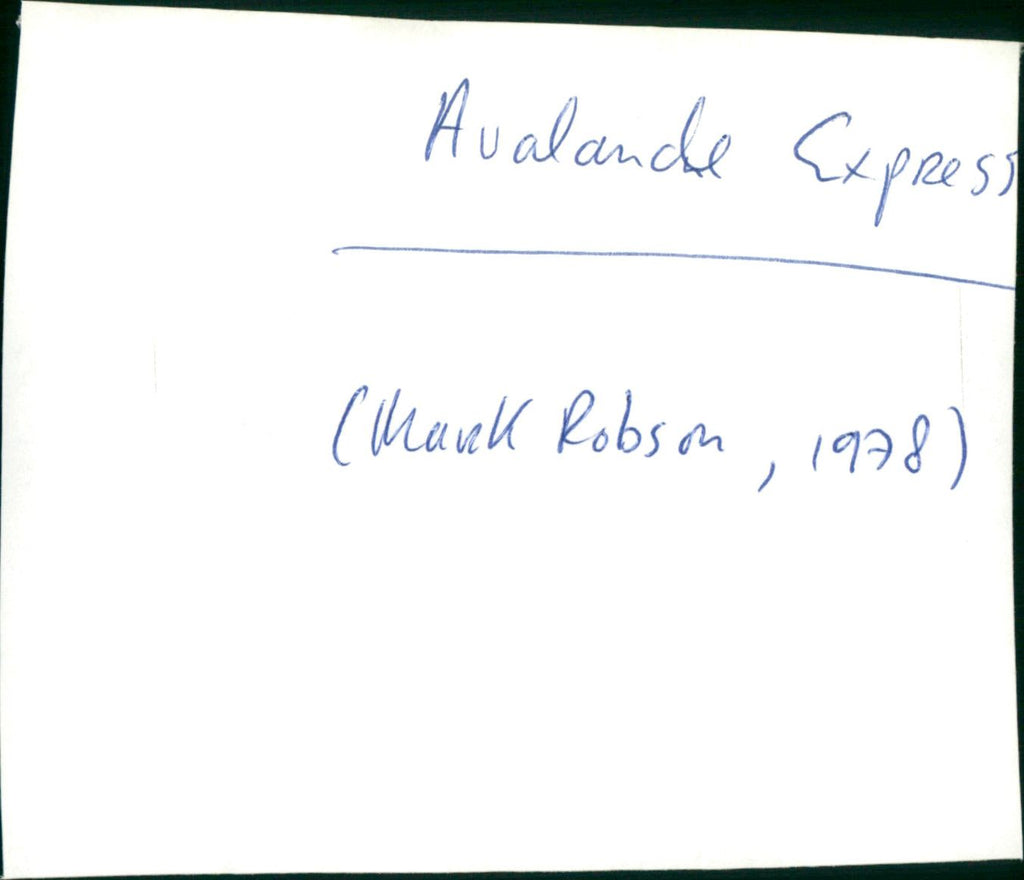 Avalanche Express
(Mark Robson, 1978)